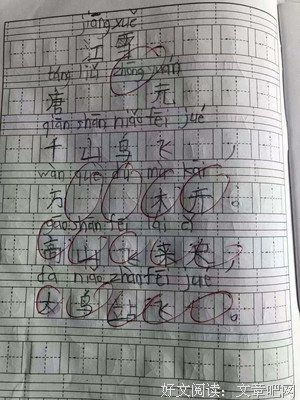 jiāng xuě
江雪
táng liǔ zhōng yuán
唐 元
qiān shān niǎo fēi jué
千山鸟飞，
wàn
万 大开。
gāo shān fēi lái
高山飞来
dà niǎo zhàn fēi jué
大鸟站飞 。
好文阅读：文章吧网